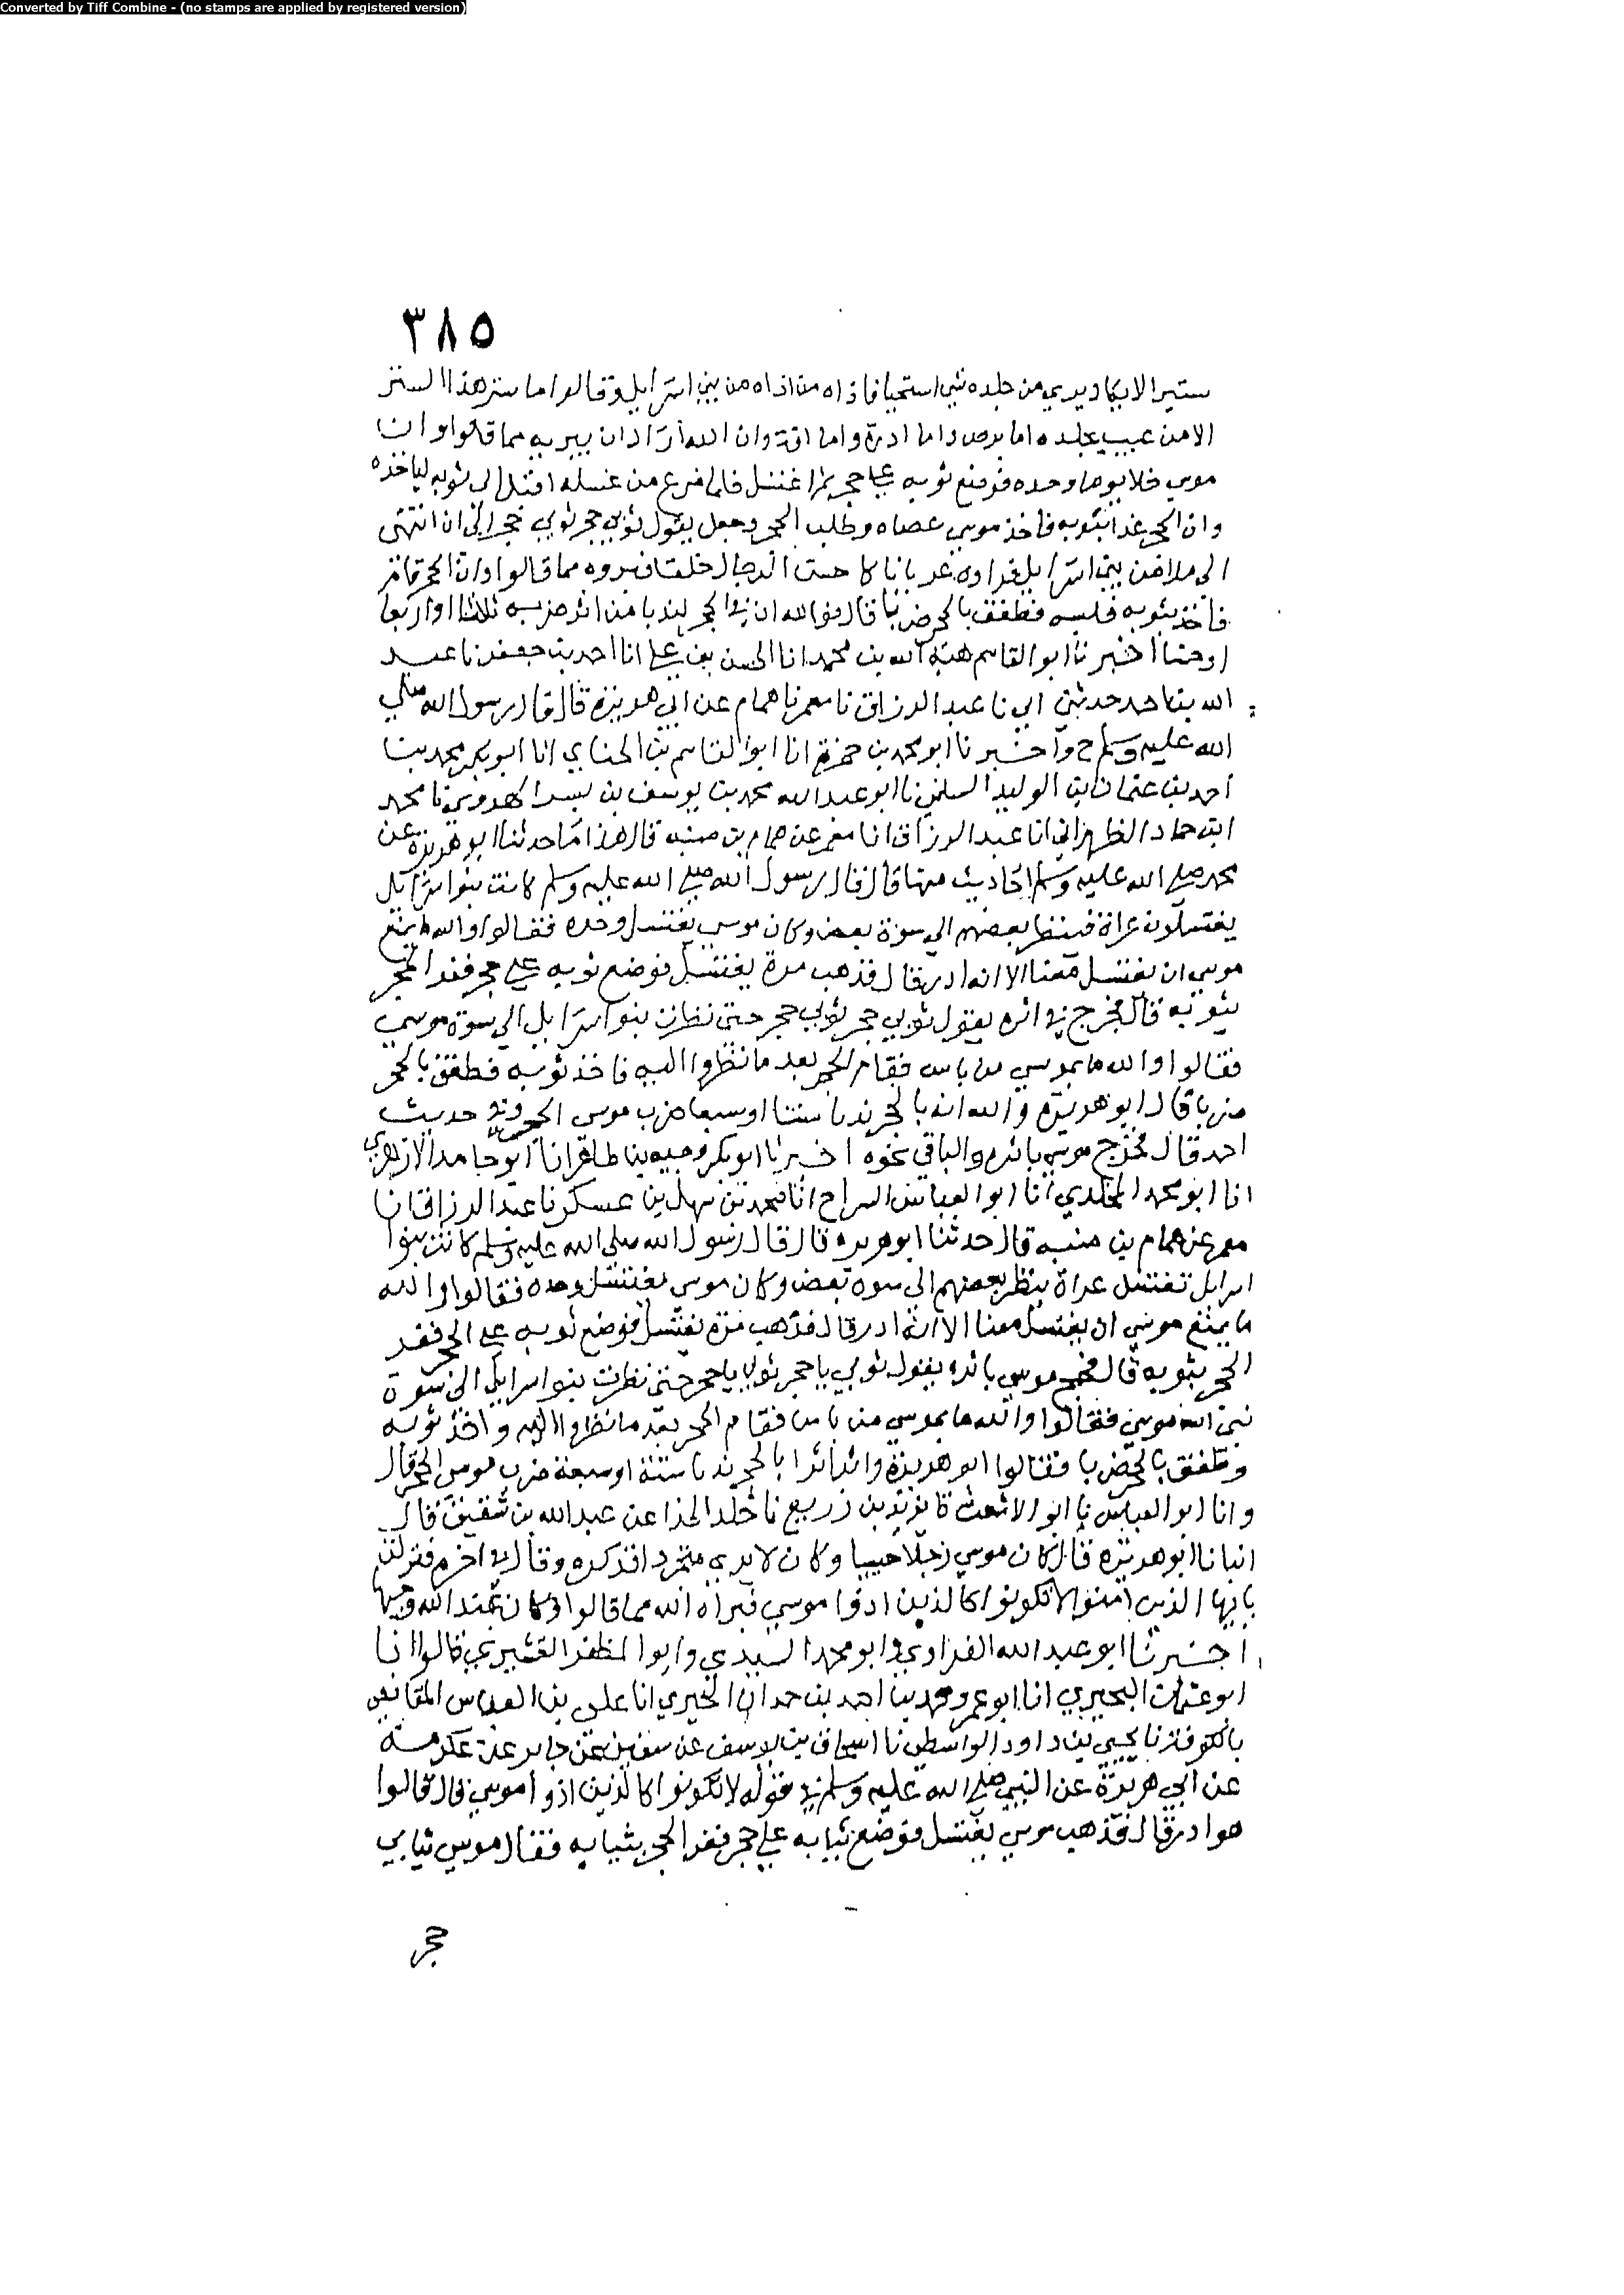 Converted by Tiff Combine - (no stamps are applied by registered version)
٣٨٥
ستيرا لا يكاد يدي من جلده شي استحيا فاذاه من اذاه من بني اسرايل وقالوا ما ستر هذا الستر
الا من عيب بجلده اما برص واما ادرة واما افة وان الله اراد ان يبريه مما قالوا وان
موسى خلا يوما وحده فوضع ثوبه على حجر ثم اغتسل فلما فرغ من غسله اقبل الى ثوبه لياخذه
وان الحجر غدا بثوبه فاخذ موسى عصاه وطلب الحجر وجعل يقول ثوبي حجر ثوبي حجر الى ان انتهى
الى ملا من بني اسرايل فراوه عريانا كاحسن الرجال خلقا فبروه مما قالوا وان الحجر قام
فاخذ ثوبه فلبسه فطفق بالحجر ضربا قال فوالله ان في الحجر لندبا من اثر ضربه ثلاثا او اربعا
او خمسا اخبرنا ابو القاسم هبة الله بن محمد انا الحسن بن علي انا احمد بن جعفر نا عبد
الله بن احمد حدثني ابي نا عبد الرزاق نا معمر نا همام عن ابي هريرة قال قال رسول الله صلى
الله عليه وسلم ح واخبرنا ابو محمد بن حمزة انا ابو القاسم بن الحنايي انا ابو بكر محمد بن
احمد بن عثمان بن الوليد السلمي نا ابو عبد الله محمد بن يوسف بن بسر الهروي نا محمد
ابن حماد الظهراني انا عبد الرزاق انا معمر عن همام بن منبه قال هذا ما حدثنا ابو هريرة عن
محمد صلى الله عليه وسلم احاديث منها قال قال رسول الله صلى الله عليه وسلم كانت بنو اسرايل
يغتسلون عراة فينظر بعضهم الى سوة بعض وكان موسى يغتسل وحده فقالوا والله ما يمنع
موسى ان يغتسل معنا الا انه ادر قال فذهب مرة يغتسل فوضع ثوبه على حجر ففر الحجر
بثوبه قال فخرج في اثره يقول ثوبي حجر ثوبي حجر حتى نظرت بنو اسرايل الى سوة موسى
فقالوا والله ما بموسى من باس فقام الحجر بعد ما نظروا اليه فاخذ ثوبه فطفق بالحجر
ضربا قال ابو هريرة والله انه بالحجر ندبا ستا او سبعا ضرب موسى الحجر وفي حديث
احمد قال فخرج موسى باثره والباقي نحوه اخبرنا ابو بكر وجيه بن طاهر انا ابو حامد الازهري
انا ابو محمد المخلدي انا ابو العباس السراج انا محمد بن سهل بن عسكر نا عبد الرزاق انا
معمر عن همام بن منبه قال حدثنا ابو هريره قال قال رسول الله صلى الله عليه وسلم كانت بنوا
اسرايل تغتسل عراة ينظر بعضهم الى سوه بعض وكان موسى يغتسل وحده فقالوا والله
ما يمنع موسى ان يغتسل معنا الا انه ادر قال فذهب مرة يغتسل فوضع ثوبه على الحجر ففر
الحجر بثوبه قال فخرج موسى باثره يقول ثوبي يا حجر ثوبي يا حجر حتى نظرت بنو اسرايل الى سوة
نبي الله موسى فقالوا والله ما بموسى من باس فقام الحجر بعد ما نظروا اليه واخذ ثوبه
وطفق بالحجر ضربا فقالوا ابو هريرة بالحجر ندبا ستة او سبعة ضرب موسى الحجر قال
وانا ابو العباس نا ابو الاشعث نا يزيد بن زريع نا خلد الحذا عن عبد الله بن شقيق قال
انبانا ابو هريره قال كان موسى رجلا حييا وكان لا يرى متجردا فذكره وقال في اخره فنزلت
يا ايها الذين امنوا لا تكونوا كالذين اذوا موسى فبراه الله مما قالوا وكان عند الله وجيها
اخبرنا ابو عبد الله الفراوي وابو محمد السيدي وابو المظفر القشيري قالوا انا
ابو عثمان البحيري انا ابو عمرو محمد بن احمد بن حمدان الحيري انا علي بن العباس المقانعي
بالكوفة نا يحيى بن داود الواسطي نا اسحاق بن يوسف عن سفين عن جابر عن عكرمة
عن ابي هريرة عن النبي صلى الله عليه وسلم في قوله لا تكونوا كالذين اذوا موسى قال قالوا
هو ادر قال فذهب موسى يغتسل فوضع ثيابه على حجر ففر الحجر بثيابه فقال موسى ثيابي
حجر